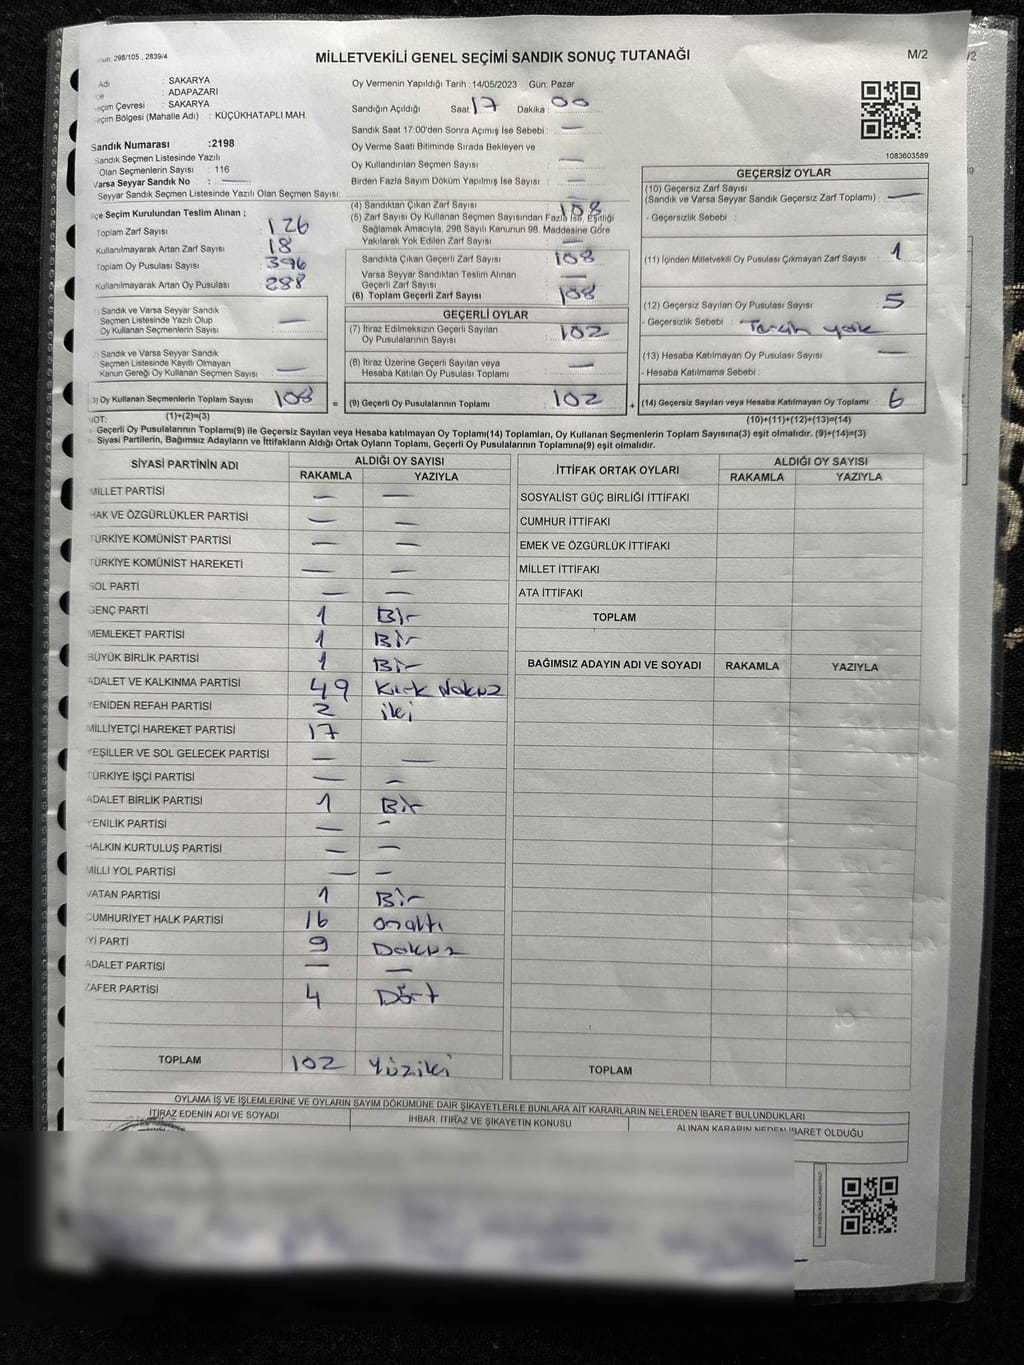 298/105 , 2839/4
MİLLETVEKİLİ GENEL SEÇİMİ SANDIK SONUÇ TUTANAĞI
M/2
Adı : SAKARYA
: ADAPAZARI
Seçim Çevresi : SAKARYA
Seçim Bölgesi (Mahalle Adı) : KÜÇÜKHATAPLI MAH.
Oy Vermenin Yapıldığı Tarih : 14/05/2023 Gün: Pazar
Sandığın Açıldığı Saat : 17 Dakika : 00
Sandık Saat 17:00'den Sonra Açımış İse Sebebi : —
Oy Verme Saati Bitiminde Sırada Bekleyen ve
Oy Kullandırılan Seçmen Sayısı : —
Birden Fazla Sayım Döküm Yapılmış İse Sayısı : —
1083603589
Sandık Numarası :2198
Sandık Seçmen Listesinde Yazılı
Olan Seçmenlerin Sayısı : 116
Varsa Seyyar Sandık No : —
Seyyar Sandık Seçmen Listesinde Yazılı Olan Seçmen Sayısı:
İlçe Seçim Kurulundan Teslim Alınan ;
Toplam Zarf Sayısı : 126
Kullanılmayarak Artan Zarf Sayısı : 18
Toplam Oy Pusulası Sayısı : 396
Kullanılmayarak Artan Oy Pusulası : 288
Sandık ve Varsa Seyyar Sandık
Seçmen Listesinde Yazılı Olup
Oy Kullanan Seçmenlerin Sayısı : —
Sandık ve Varsa Seyyar Sandık
Seçmen Listesinde Kayıtlı Olmayan
Kanun Gereği Oy Kullanan Seçmen Sayısı : —
Oy Kullanan Seçmenlerin Toplam Sayısı : 108
(1)+(2)=(3)
(4) Sandıktan Çıkan Zarf Sayısı : 108
(5) Zarf Sayısı Oy Kullanan Seçmen Sayısından Fazla İse, Eşitliği
Sağlamak Amacıyla, 298 Sayılı Kanunun 98. Maddesine Göre
Yakılarak Yok Edilen Zarf Sayısı : —
Sandıkta Çıkan Geçerli Zarf Sayısı : 108
Varsa Seyyar Sandıktan Teslim Alınan
Geçerli Zarf Sayısı : —
(6) Toplam Geçerli Zarf Sayısı : 108
GEÇERLİ OYLAR
(7) İtiraz Edilmeksizin Geçerli Sayılan
Oy Pusulalarının Sayısı : 102
(8) İtiraz Üzerine Geçerli Sayılan veya
Hesaba Katılan Oy Pusulası Toplamı : —
= (9) Geçerli Oy Pusulalarının Toplamı : 102
GEÇERSİZ OYLAR
(10) Geçersiz Zarf Sayısı
(Sandık ve Varsa Seyyar Sandık Geçersiz Zarf Toplamı) : —
- Geçersizlik Sebebi :
(11) İçinden Milletvekili Oy Pusulası Çıkmayan Zarf Sayısı : 1
(12) Geçersiz Sayılan Oy Pusulası Sayısı : 5
- Geçersizlik Sebebi : Tercih yok
(13) Hesaba Katılmayan Oy Pusulası Sayısı : —
- Hesaba Katılmama Sebebi :
+ (14) Geçersiz Sayılan veya Hesaba Katılmayan Oy Toplamı : 6
(10)+(11)+(12)+(13)=(14)
NOT:
- Geçerli Oy Pusulalarının Toplamı(9) ile Geçersiz Sayılan veya Hesaba katılmayan Oy Toplamı(14) Toplamları, Oy Kullanan Seçmenlerin Toplam Sayısına(3) eşit olmalıdır. (9)+(14)=(3)
- Siyasi Partilerin, Bağımsız Adayların ve İttifakların Aldığı Ortak Oyların Toplamı, Geçerli Oy Pusulalarının Toplamına(9) eşit olmalıdır.
SİYASİ PARTİNİN ADI ALDIĞI OY SAYISI
RAKAMLA YAZIYLA
MİLLET PARTİSİ — —
HAK VE ÖZGÜRLÜKLER PARTİSİ — —
TÜRKİYE KOMÜNİST PARTİSİ — —
TÜRKİYE KOMÜNİST HAREKETİ — —
SOL PARTİ — —
GENÇ PARTİ 1 Bir
MEMLEKET PARTİSİ 1 Bir
BÜYÜK BİRLİK PARTİSİ 1 Bir
ADALET VE KALKINMA PARTİSİ 49 Kırk Dokuz
YENİDEN REFAH PARTİSİ 2 iki
MİLLİYETÇİ HAREKET PARTİSİ 17
YEŞİLLER VE SOL GELECEK PARTİSİ — —
TÜRKİYE İŞÇİ PARTİSİ — —
ADALET BİRLİK PARTİSİ 1 Bir
YENİLİK PARTİSİ — —
HALKIN KURTULUŞ PARTİSİ — —
MİLLİ YOL PARTİSİ — —
VATAN PARTİSİ 1 Bir
CUMHURİYET HALK PARTİSİ 16 onaltı
İYİ PARTİ 9 Dokuz
ADALET PARTİSİ — —
ZAFER PARTİSİ 4 Dört
TOPLAM 102 Yüziki
İTTİFAK ORTAK OYLARI ALDIĞI OY SAYISI
RAKAMLA YAZIYLA
SOSYALİST GÜÇ BİRLİĞİ İTTİFAKI
CUMHUR İTTİFAKI
EMEK VE ÖZGÜRLÜK İTTİFAKI
MİLLET İTTİFAKI
ATA İTTİFAKI
TOPLAM
BAĞIMSIZ ADAYIN ADI VE SOYADI RAKAMLA YAZIYLA
TOPLAM
OYLAMA İŞ VE İŞLEMLERİNE VE OYLARIN SAYIM DÖKÜMÜNE DAİR ŞİKAYETLERLE BUNLARA AİT KARARLARIN NELERDEN İBARET BULUNDUKLARI
İTİRAZ EDENİN ADI VE SOYADI
İHBAR, İTİRAZ VE ŞİKAYETİN KONUSU
ALINAN KARARIN NEDEN İBARET OLDUĞU